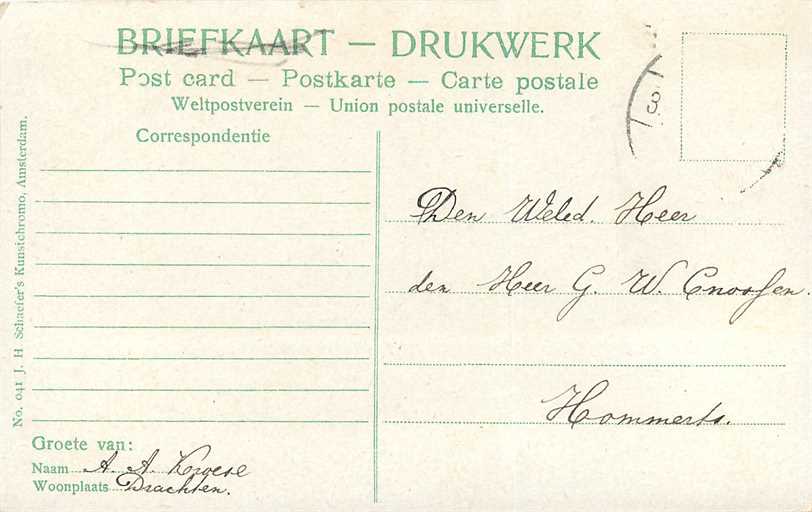 BRIEFKAART — DRUKWERK
Post card — Postkarte — Carte postale
Weltpostverein — Union postale universelle.
Correspondentie
No. 041 J. H. Schaefer's Kunstchromo, Amsterdam.
3
Den Weled. Heer
den Heer G. W. Cnossen.
Hommerts.
Groete van:
Naam A. A. Kroese
Woonplaats Drachten.